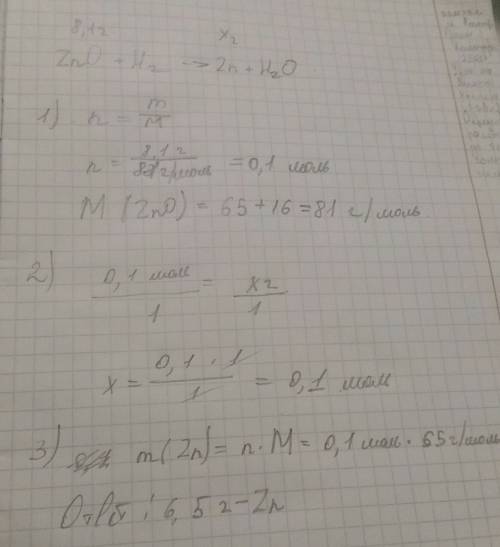 8,1 г x г
ZnO + H₂ → Zn + H₂O
1) n = m/M
n = 8,1 г / 81 г/моль = 0,1 моль
M (ZnO) = 65 + 16 = 81 г/моль
2) 0,1 мол / 1 = x г / 1
x = 0,1 · 1 / 1 = 0,1 мол
3) m (Zn) = n · M = 0,1 мол · 65 г/моль
Ответ: 6,5 г – Zn